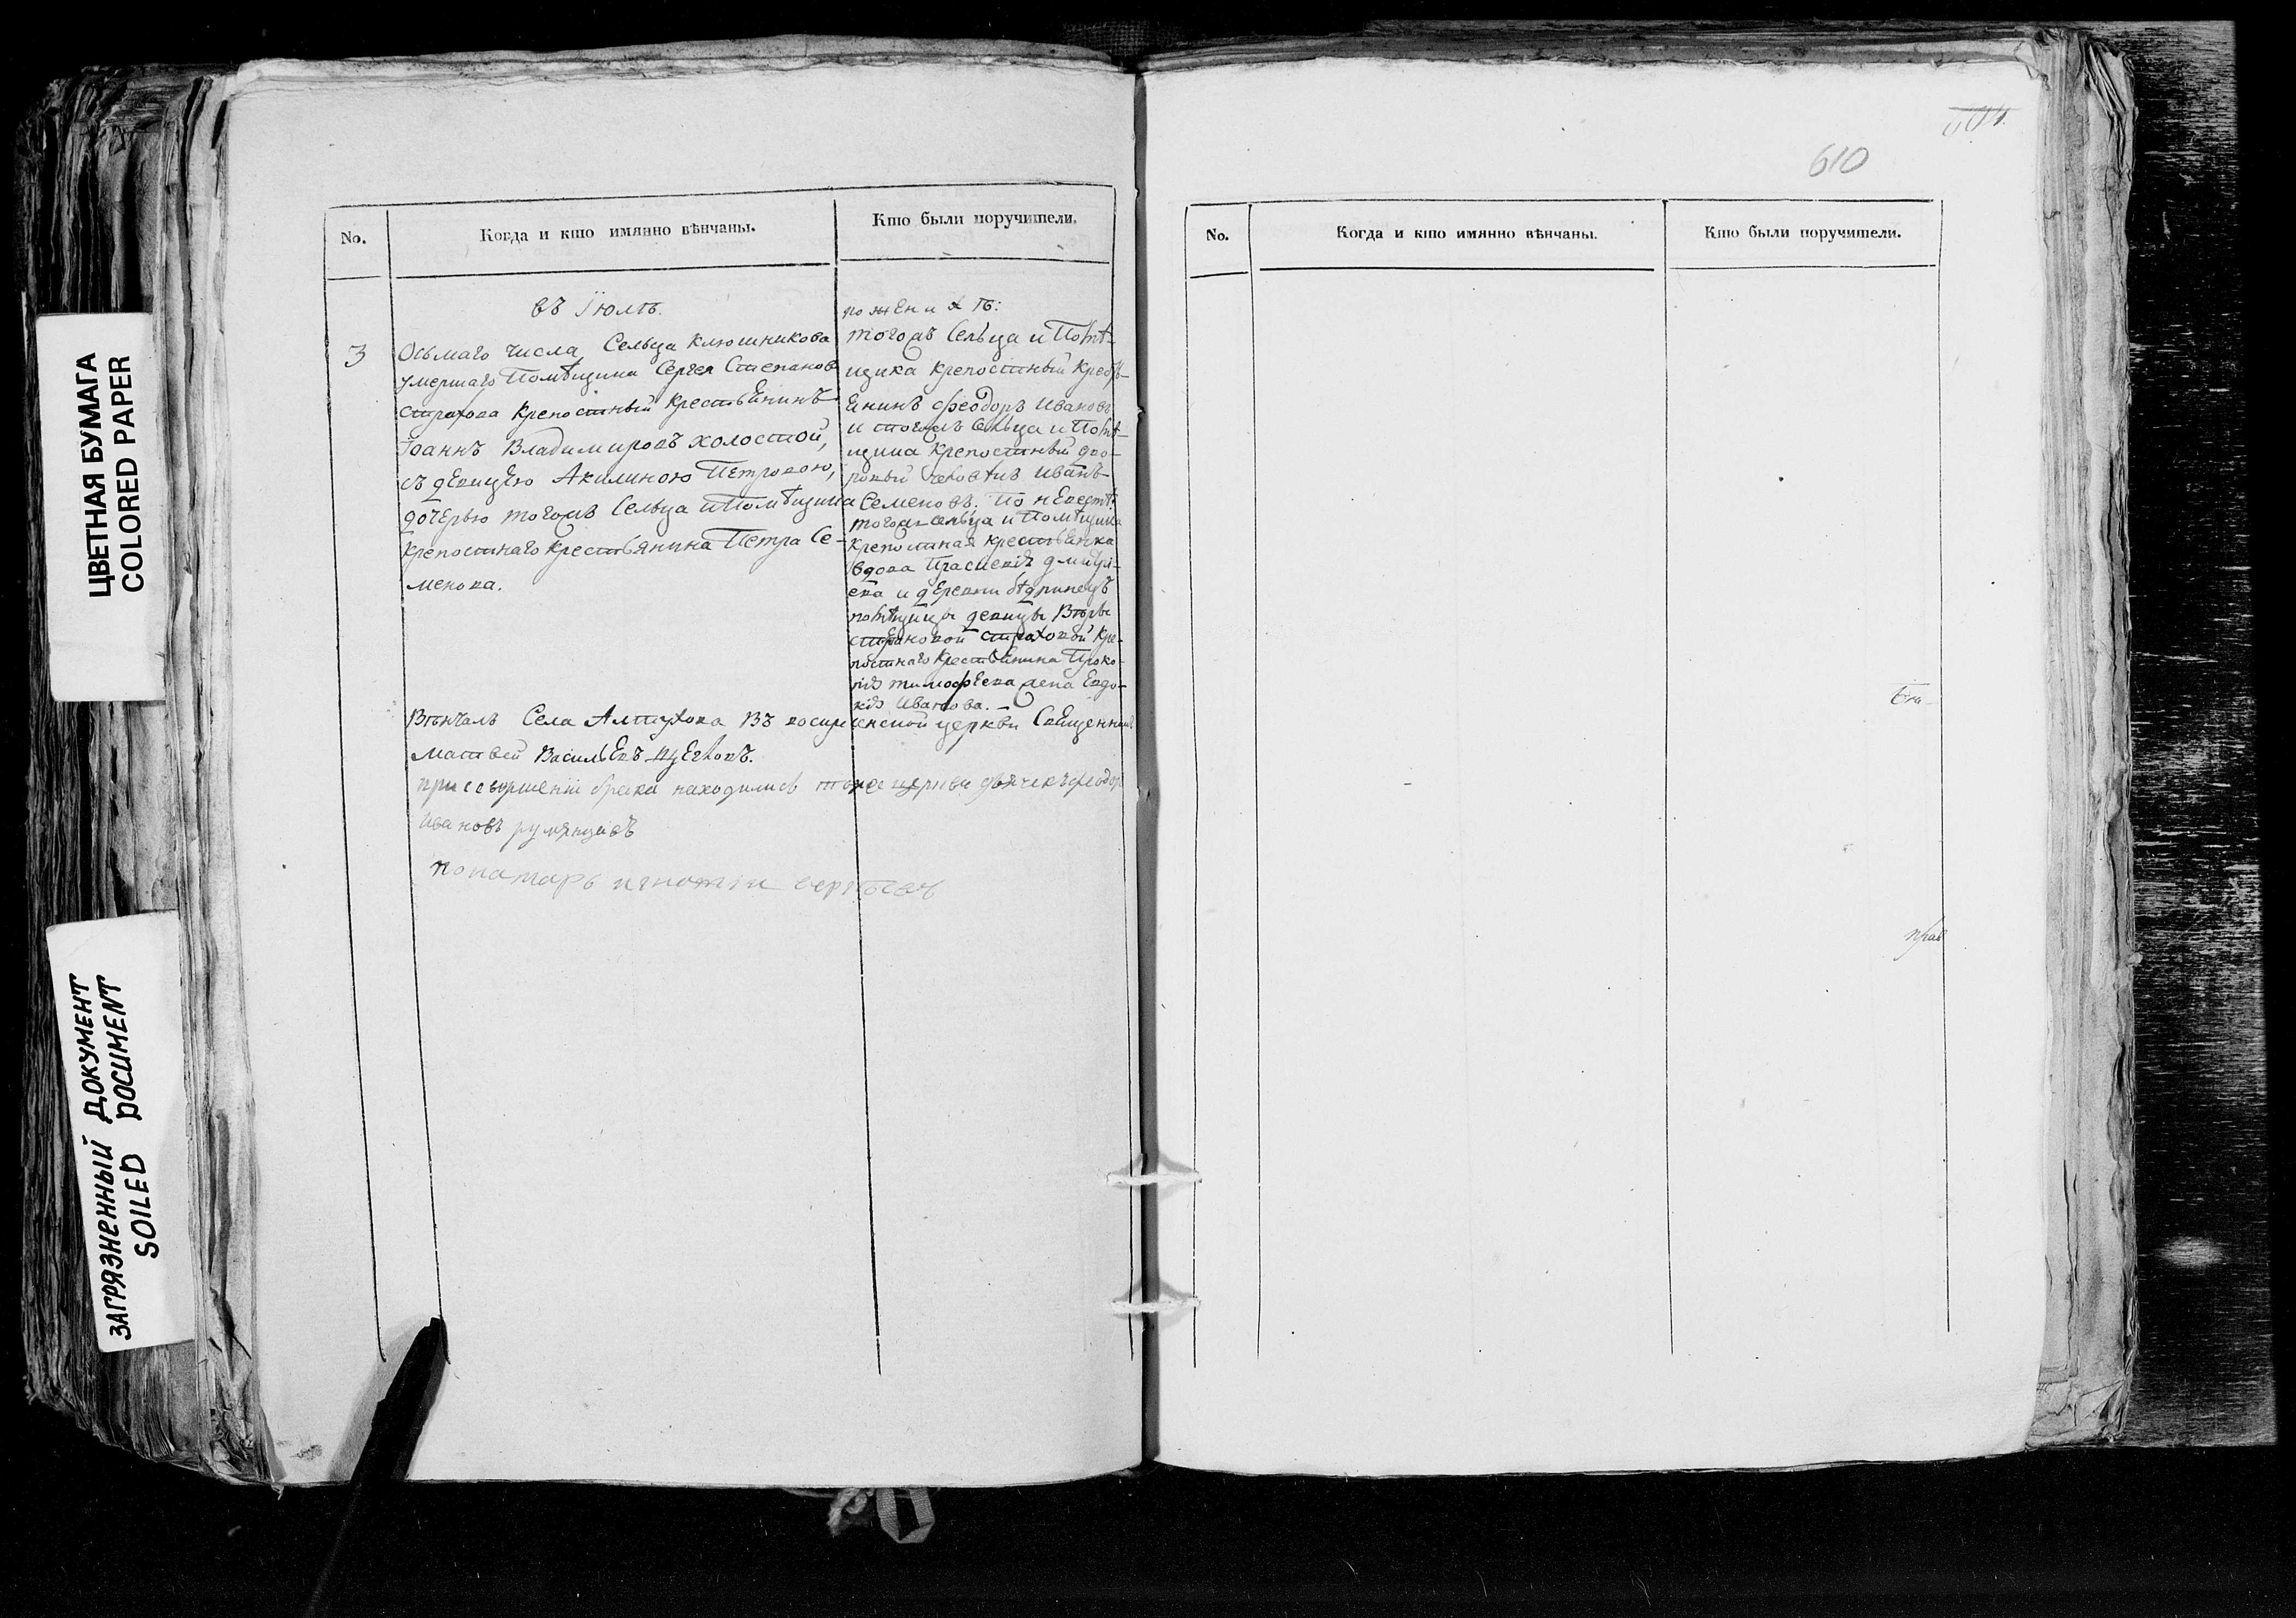 ЦВЕТНАЯ БУМАГА
COLORED PAPER
ЗАГРЯЗНЕННЫЙ ДОКУМЕНТ
SOILED DOCUMENT
No.
Когда и кто имянно вѣнчаны.
Кто были поручители.
въ Iюлѣ.
3
Осьмаго числа, Сельца Клюшникова
умершаго Помѣщика Сергея Степанова
страхова Крепостный КрестьЕнинъ
Iоаннъ Владимировъ холостой,
съ дЕвицЕю Акилиною ПЕтровою,
дочЕрью тогожъ Сельца и Помѣщика
Крепостнаго Крестьянина Петра Се-
менова.
по жЕнихѣ:
тогожъ Сельца и Помѣ-
щика крепостный Кресть-
Енинъ феодоръ Ивановъ
и тогожъ Сельца и Помѣ-
щика Крепостный дво-
ровый человѣкъ Иванъ
Семеновъ. По нЕвестѣ
тогожъ сельца и Помѣщика
Крепостная крестьЕнка
вдова Праскевiя дмитрi-
ева и дЕревни
помѣщицы девицы Вѣры
стЕпановой страховой Кре-
постнаго КрестьЕнина Проко-
пiя тимофЕева жена Евдо-
кiя Иванова.
Вѣнчалъ Села Алтухова Въ воскресенской церкви СвЕщенникъ
Матвей ВасильЕвъ
при совершенiи брака находились тоже церкви дьячекъ феодоръ
Ивановъ румянцовъ
понамарь игнатiи сергѣевъ
610
No.
Когда и кто имянно вѣнчаны.
Кто были поручители.